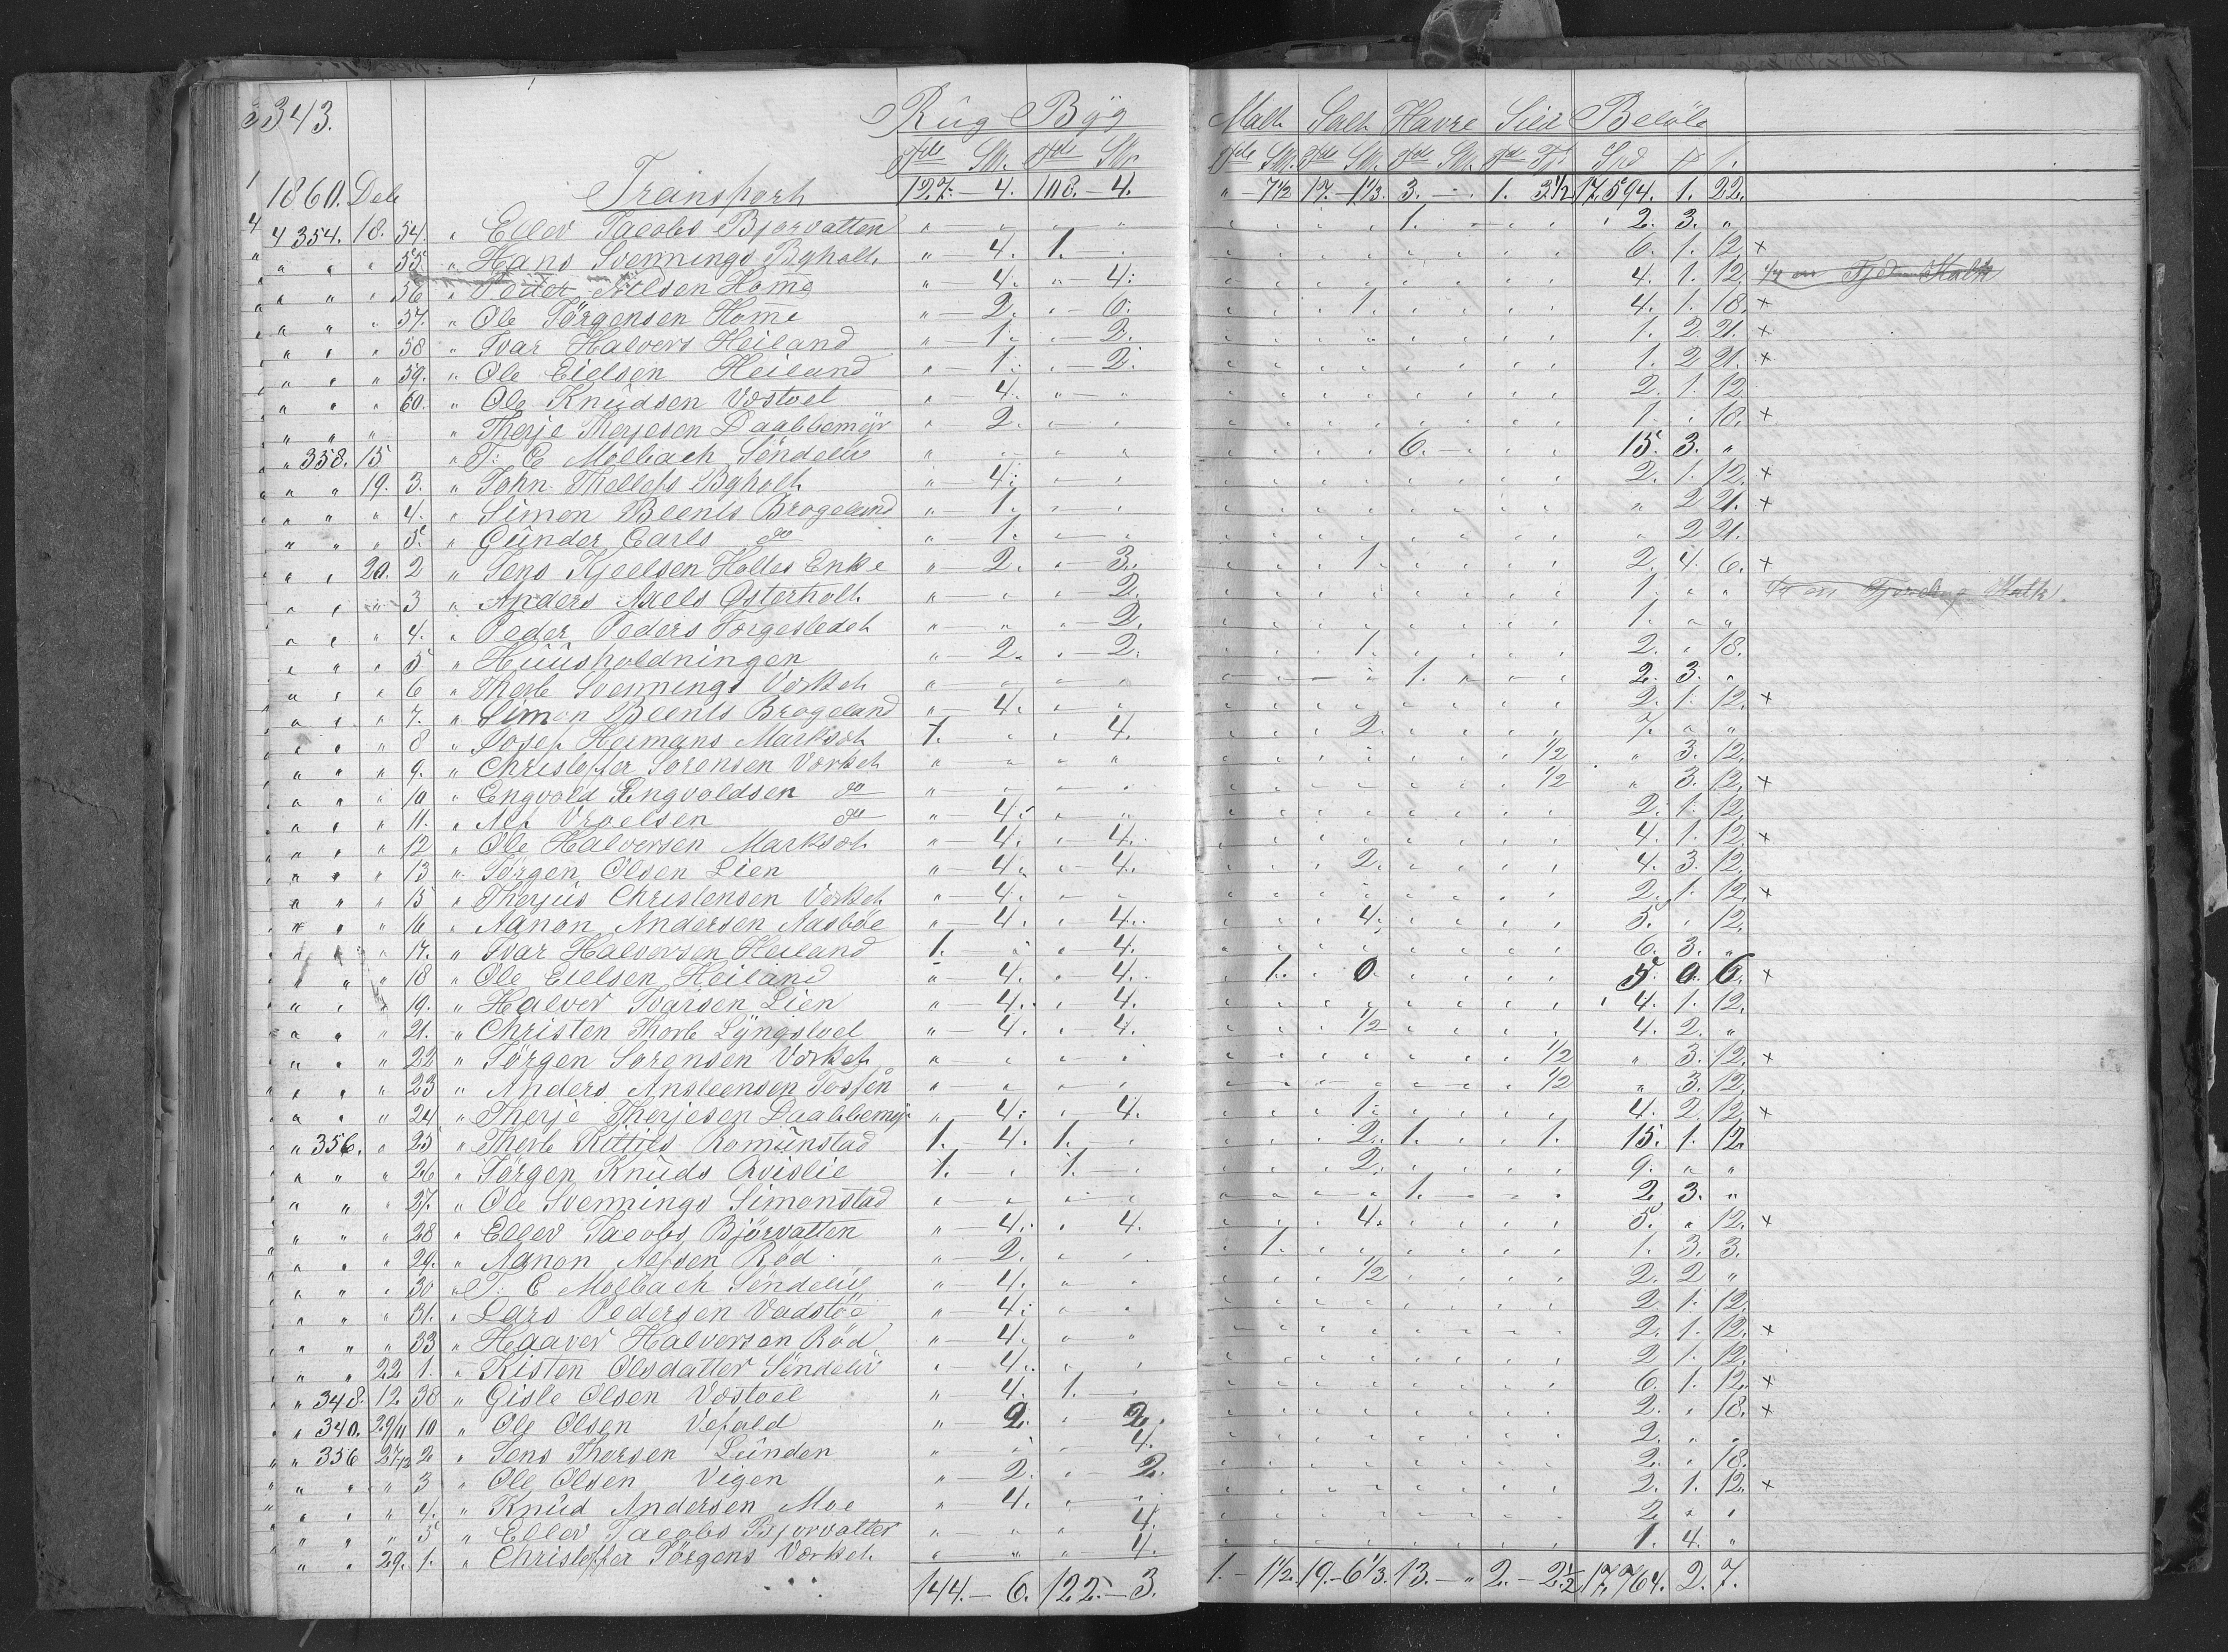 343. Rug Byg Malt Salt Havre Sild Beløb
Tdr Skr. Tdr Skr Tdr Skr. Tdr Skr. Tdr Skr. Tdr Fjr Spd
1860. Dcb Transport 127. – 4. 108. – 4. " – 7 1/2 17. – 1 1/3. 3. – . 1. 3 1/2 17,594. 1. 22.
4 354. 18. 54. " Ellev Jacobs Bjorvatten " " " " 1. 2. 3. "
" " " 55. " Hans Svennings Bgholt. " – 4. 1. 6. 1. 12. ×
" " " 56 " Peder Nilsen Home " – 4. " – 4. 4. 1. 12.
" " " 57. " Ole Jörgensen Home " – 2. " – 6. 1. 4. 1. 18. ×
" " " 58 " Ivar Halvors Heiland " – 1. " – 2. 1. 2 21. ×
" " " 59. " Ole Eielsen Heiland " – 1. " – 2. 1. 2 21. ×
" " " 60. " Ole Knudsen Vostvet " – 4. " – " 2. 1. 12.
" " " " Therje Therjesen Daabbemyr " 2. " 1. " 18. ×
" 358. 15 " J: C Molbach Söndelev " " " 6. 15. 3. "
" " 19. 3. " John Thellefs Bgholt " 4. " 2. 1. 12. ×
" " " 4. " Simon Beents Brogeland " – 1. " " 2 21. ×
" " " 5. " Gunder Carls do " – 1. " " 2 21.
" " 20. 2 " Jens Kjeelsen Holtes Enke " – 2. " 3. 1. 2. 4. 6. ×
" " " 3 " Anders Axels Østerholt " – " " 2. 1. " "
" " " 4. " Peder Peders Torgersledet " " " – 2. 1. " "
" " " 5 " Huusholdningen " – 2. " – 2. 1. 2. " 18.
" " " 6 " Therb Svennings Værket " " " 1. 2. 3. "
" " " 7. " Simon Beents Brogeland " – 4. " 2. 1. 12. ×
" " " 8 " Josef Hermans Marksæt 1. " " 4. 2. 7. " "
" " " 9. " Christoffer Sorensen Værket " " " " 1/2 " 3. 12.
" " " 10 " Engvold Engvoldsen do " " " 1/2 " 3. 12. ×
" " " 11. " Alf Vraelsen do " – 4. " " 2. 1. 12.
" " " 12 " Ole Halversen Marksæt " – 4. " 4. 4. 1. 12. ×
" " " 13 " Jörgen Olsen Lien " – 4. " – 4. 2. 4. 3. 12.
" " " 15 " Therjus Christensen Værket " – 4. " 2. 1. 12. ×
" " " 16 " Aanon Andersen Aasböe " 4. " 4. 4. 5. " 12.
" " " 17. " Ivar Halversen Heiland 1. " " 4. 6. 3. "
" " " 18 " Ole Eielsen Heiland " 4. " – 4. 1. 0. 5. 0. 6. ×
" " " 19. " Halver Ivarsen Lien " – 4. " 4. 4. 1. 12.
" " " 21. " Christen Thorb Lyngstvet " – 4. " – 4. 1/2 4. 2. "
" " " 22 " Jörgen Sorensen Værket " " " 1/2 " 3. 12. ×
" " " 23 " Anders Ansteensen Josfen " " " 1/2 " 3. 12.
" " " 24 " Therje Therjesen Daabbemyr " 4. " 4. 1. 4. 2. 12. ×
" 356. " 25 " Therb Kittils Romunstad 1. – 4. 1. 2. 1. 1. 15. 1. 12.
" " " 26 " Jörgen Knuds Qvislie 1. " 1. 2. 9. " "
" " " 27. " Ole Svennings Simonstad " " " 1. 2. 3. "
" " " 28 " Ellev Jacobs Björvatten " – 4. " 4. 4. 5. " 12. ×
" " " 29. " Aanon Alfsen Röd " 2. " 1. 1. 3. 3.
" " " 30 " J: C Molbach Söndelev " – 4. " 1/2 2. 2 "
" " " 31. " Lars Pedersen Vadstöe " – 4. " 2. 1. 12.
" " " 33 " Haaver Halversen Röd " – 4. " " 2. 1. 12. ×
" " 22 1. " Kisten Olsdatter Söndelev " – 4. " 2 1. 12.
" 348. 12 38 " Gisle Olsen Vostvet " 4. 1. 6. 1. 12. ×
" 340. 29/11 10 " Ole Olsen Vefald " – 2. " 2. 2. " 18. ×
" 356 27/12 2 " Jens Thorsen Lunden " " " 4. 2. " "
" " " 3 " Ole Olsen Vigen " – 2. " – 2. 2. " 18.
" " " 4. " Knud Andersen Moe " 4. " 2. 1. 12. ×
" " " 5 " Ellev Jacobs Bjorvatten " " " 4. 2. " "
" " 29. 1. " Christoffer Jörgens Værket " " " 4. 1. 4. "
144. – 6. 122. – 3. 1. – 1 1/2. 19. – 6 1/3. 13. – " 2. – 2 1/2 17,764. 2. 7.